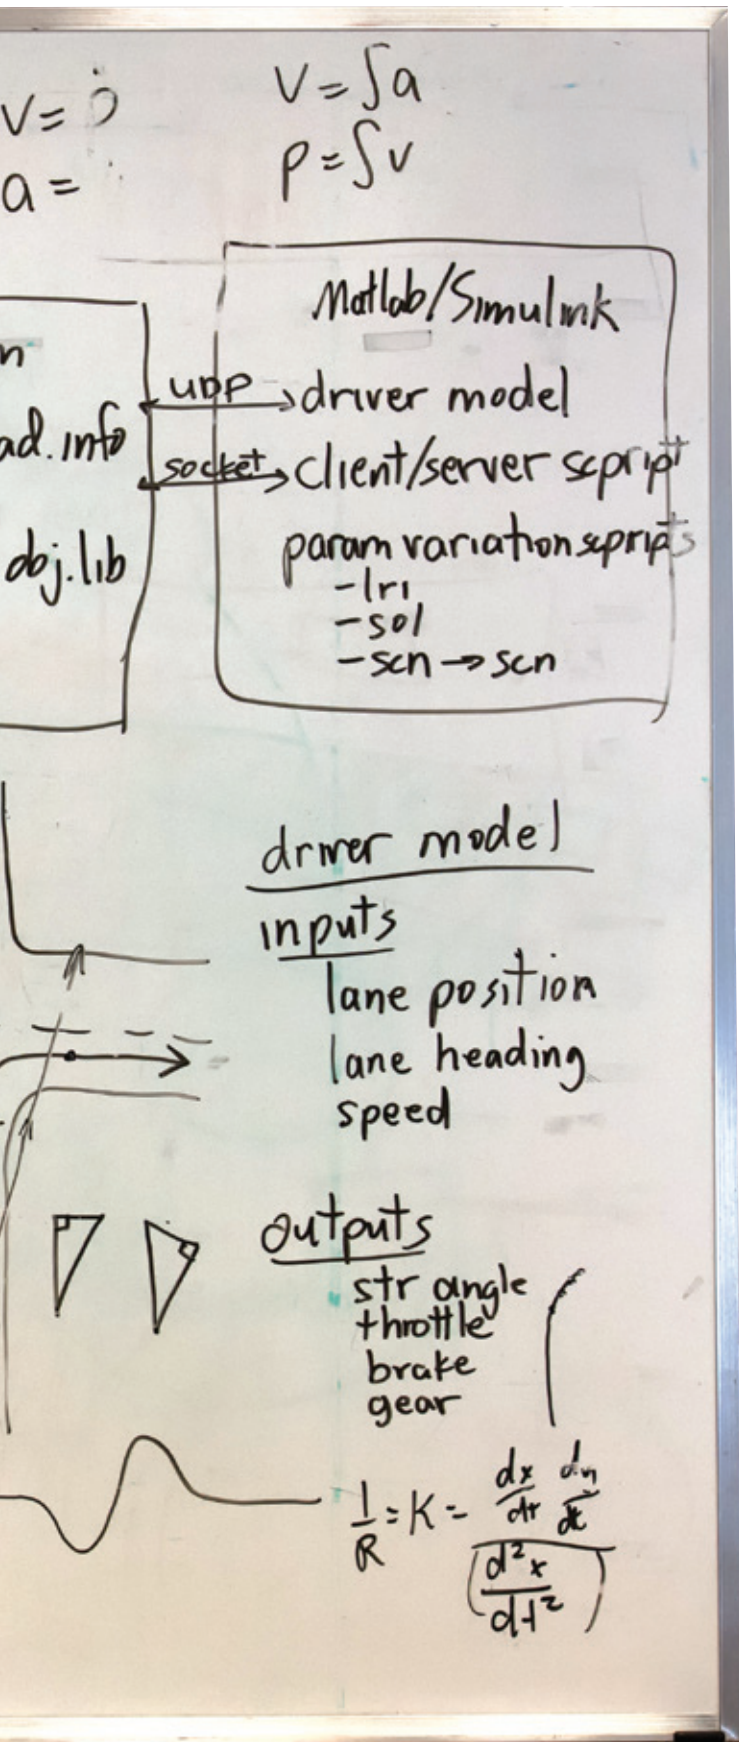 v = ṗ
a =
v = ∫a
p = ∫v
n
ad.info
obj.lib
UDP
socket
Matlab/Simulink
driver model
client/server scpript
param variation scpripts
- lri
- sol
- scn → scn
driver model
inputs
lane position
lane heading
speed
outputs
str angle
throttle
brake
gear
1/R = K =
dx/dt dy/dt
(d²x/dt²)